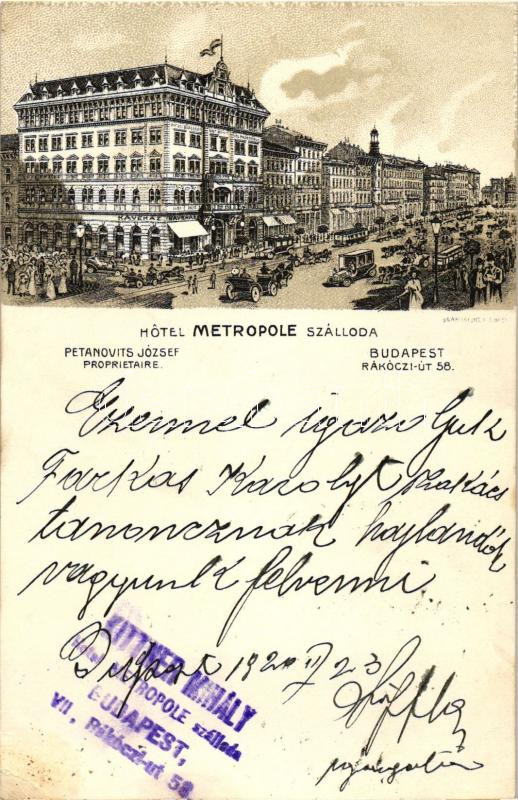 KÁVÉHÁZ
HÔTEL METROPOLE SZÁLLODA
PETANOVITS JÓZSEF
PROPRIETAIRE.
BUDAPEST
RÁKÓCZI-ÚT 58.
Ezennel igazoljuk
Farkas Károlyt szakács
tanoncznak hajlandók
vagyunk felvenni.
Bupest 192 II/23
MIHÁLY
METROPOLE szálloda
BUDAPEST,
VII, Rákóczi-út 58.